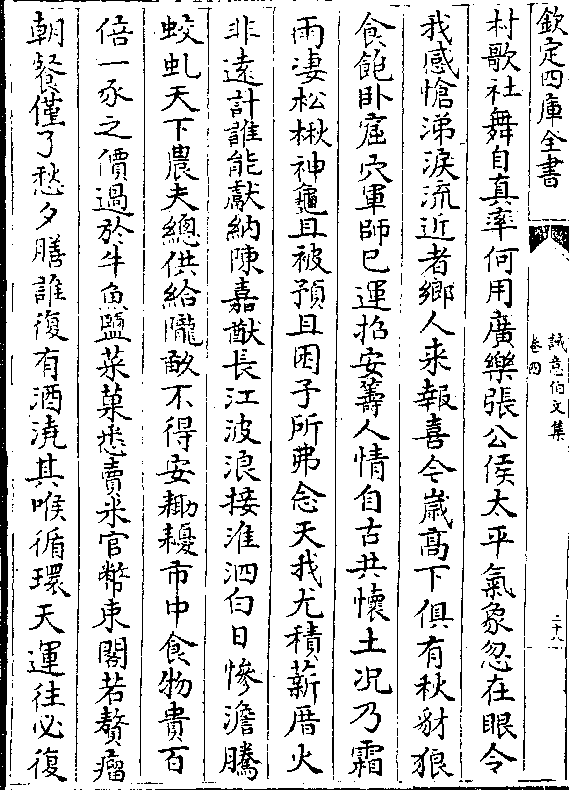 欽定四庫全書
誠意伯文集
卷四
二十八
村歌社舞自真率何用廣樂張公侯太平氣象忽在眼令
我感愴涕淚流近者鄉人来報喜今嵗髙下俱有秋豺狼
食飽卧窟穴軍師已運招安籌人情自古共懷土况乃霜
雨凄松楸神龜且被預且困子所弗念天我尤積薪厝火
非逺計誰能獻納陳嘉猷長江波浪接淮泗白日慘澹騰
蛟虬天下農夫總供給隴畝不得安耡耰市中食物貴百
倍一豕之價過於牛魚鹽菜菓悉賣米官幣束閣若贅瘤
朝餐僅了愁夕膳誰復有酒澆其喉循環天運往必復